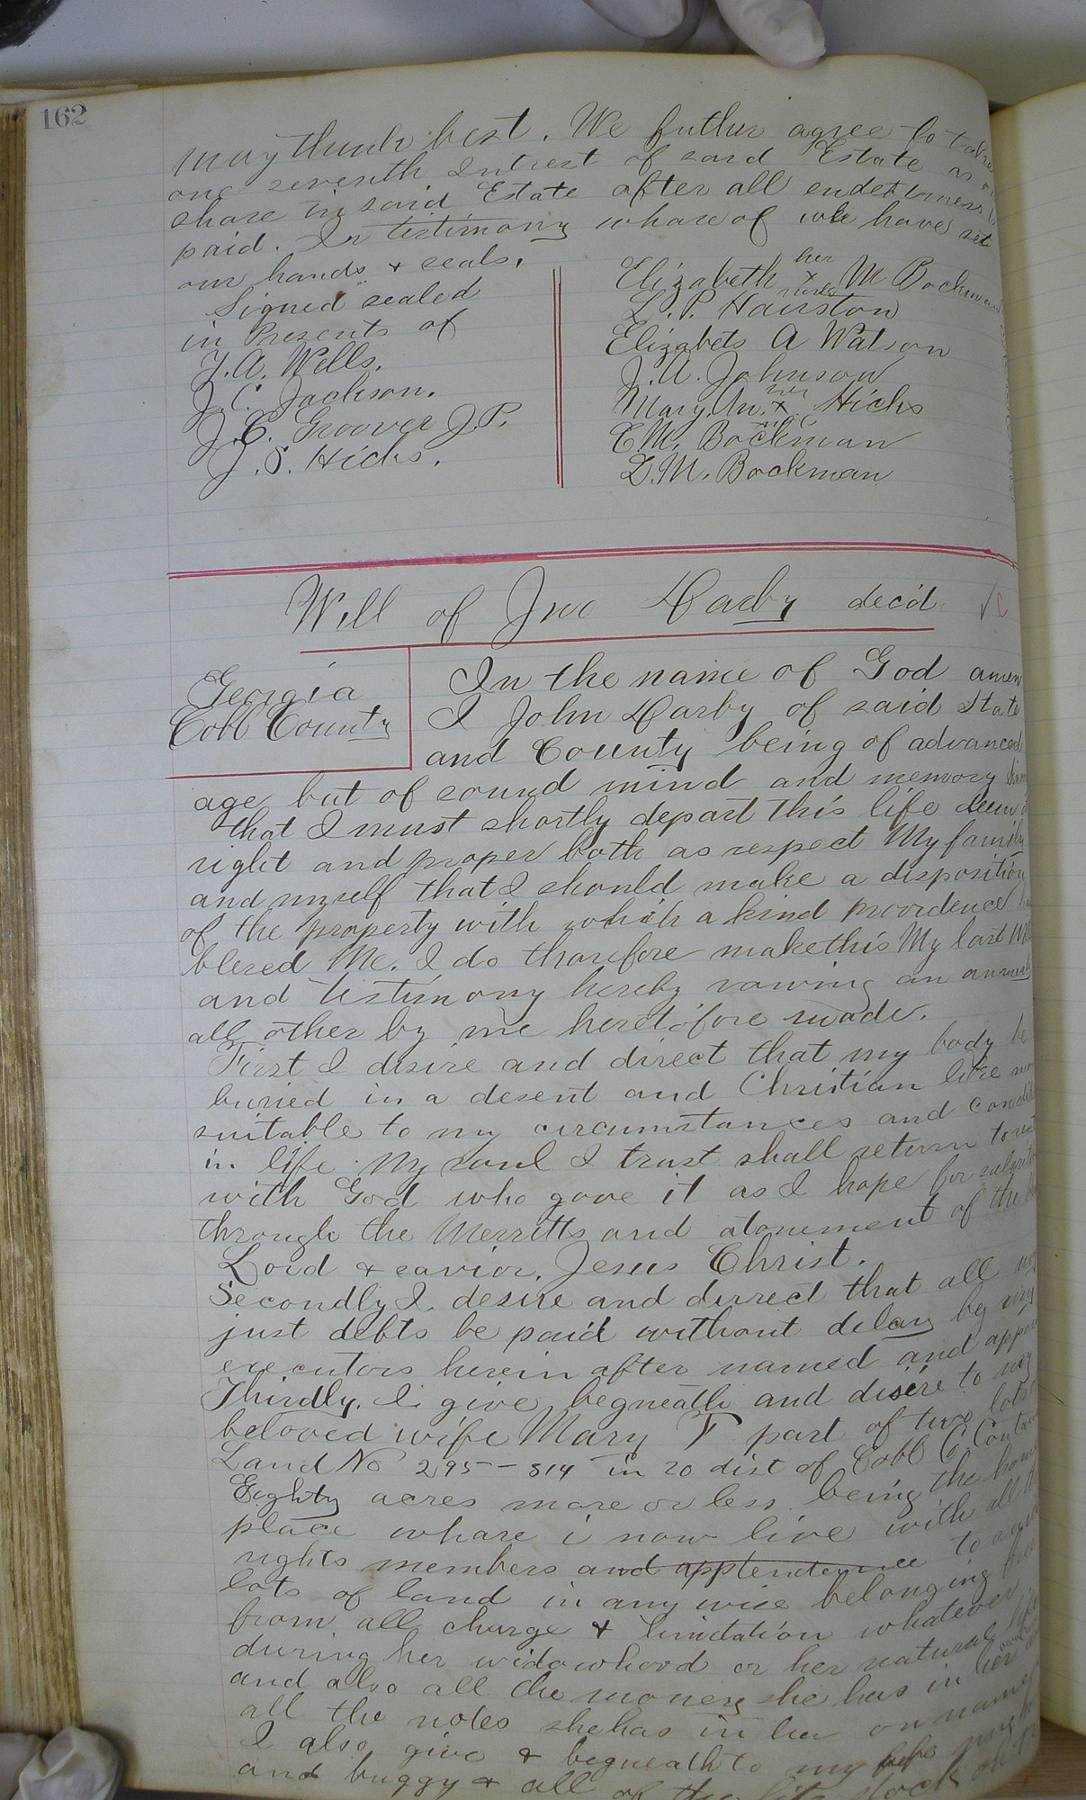 162
may think best. We futher agree to take
one seventh Intrest of said Estate as
share in said Estate after all endebtness is
paid. In testimony whare of we have set
our hands & seals.
Signed sealed
in Presents of
J. C. Jackson.
J. C. Groover J.P.
J. S. Hicks.
Elizabeth her x mark M Bockman
L. P. Hairston
Elizabets A Watson
J. A. Johnson
Mary An. her x mark Hicks
C. M. Bockman
D. M. Bockman
Will of Jno Darby dec'd
Georgia
Cobb County
In the name of God amen
I John Darby of said State
and County being of advanced
age but of sound mind and memory
that I must shortly depart this life deem it
right and proper both as respect My family
and myself that I should make a disposition
of the property with which a kind providence
blesed Me. I do tharefore make this My last Will
and testimony hereby
all other by me heretofore made.
First I disire and direct that my body be
buried in a desent and Christian like
suitable to my circumstances and
in life. My soul I trust shall return to
with God who gave it as I hope for
through the Merritts and atonement of the
Lord & savior. Jesus Christ.
Secondly I desire and dirrect that all my
just debts be paid without delay by my
executors herein after named and
Thirdly. I give begneath and disire to my
beloved wife Mary F part of two lots
Land No 295 - 814 in 20 dist of Cobb C
Eighty acres more or less being the home
place whare i now live with all
rights members and apptendence to
lots of land in any wise belonging free
from all charge & limitation whatever
during her widowhood or her natural life
and also all the money she has in her
all the notes she has in her own name
I also give & begneath to my
and buggy & all of the